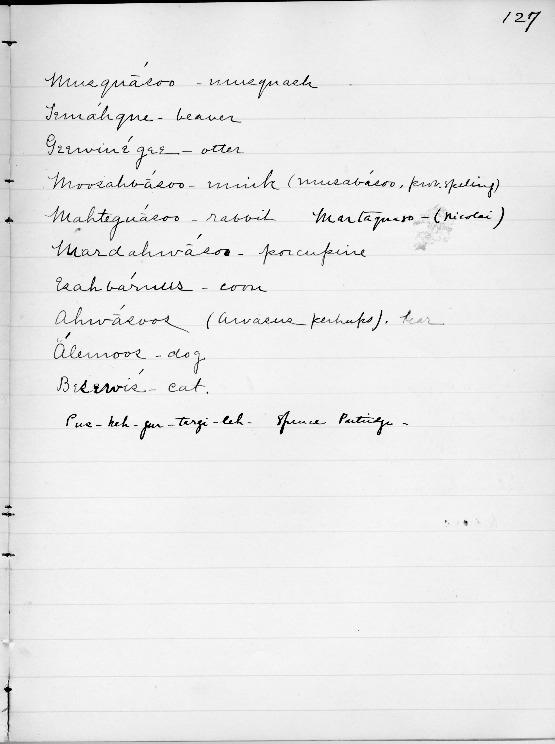 127
Musquāsoo - musquash
Temáhque - beaver
Geewiné gee - otter
Moosahwāsoo - mink (musabásoo, prob. speling)
Mahteguásoo - rabbit Martaquaso - (Nicolai)
Mardahwāsoo - porcupine
Esahbárnus - coon
Ahwāsoos (Awasus perhaps). bear
Álemoos - dog
Besewís - cat.
Pus-keh-gur-targi-leh. Spruce Partridge -